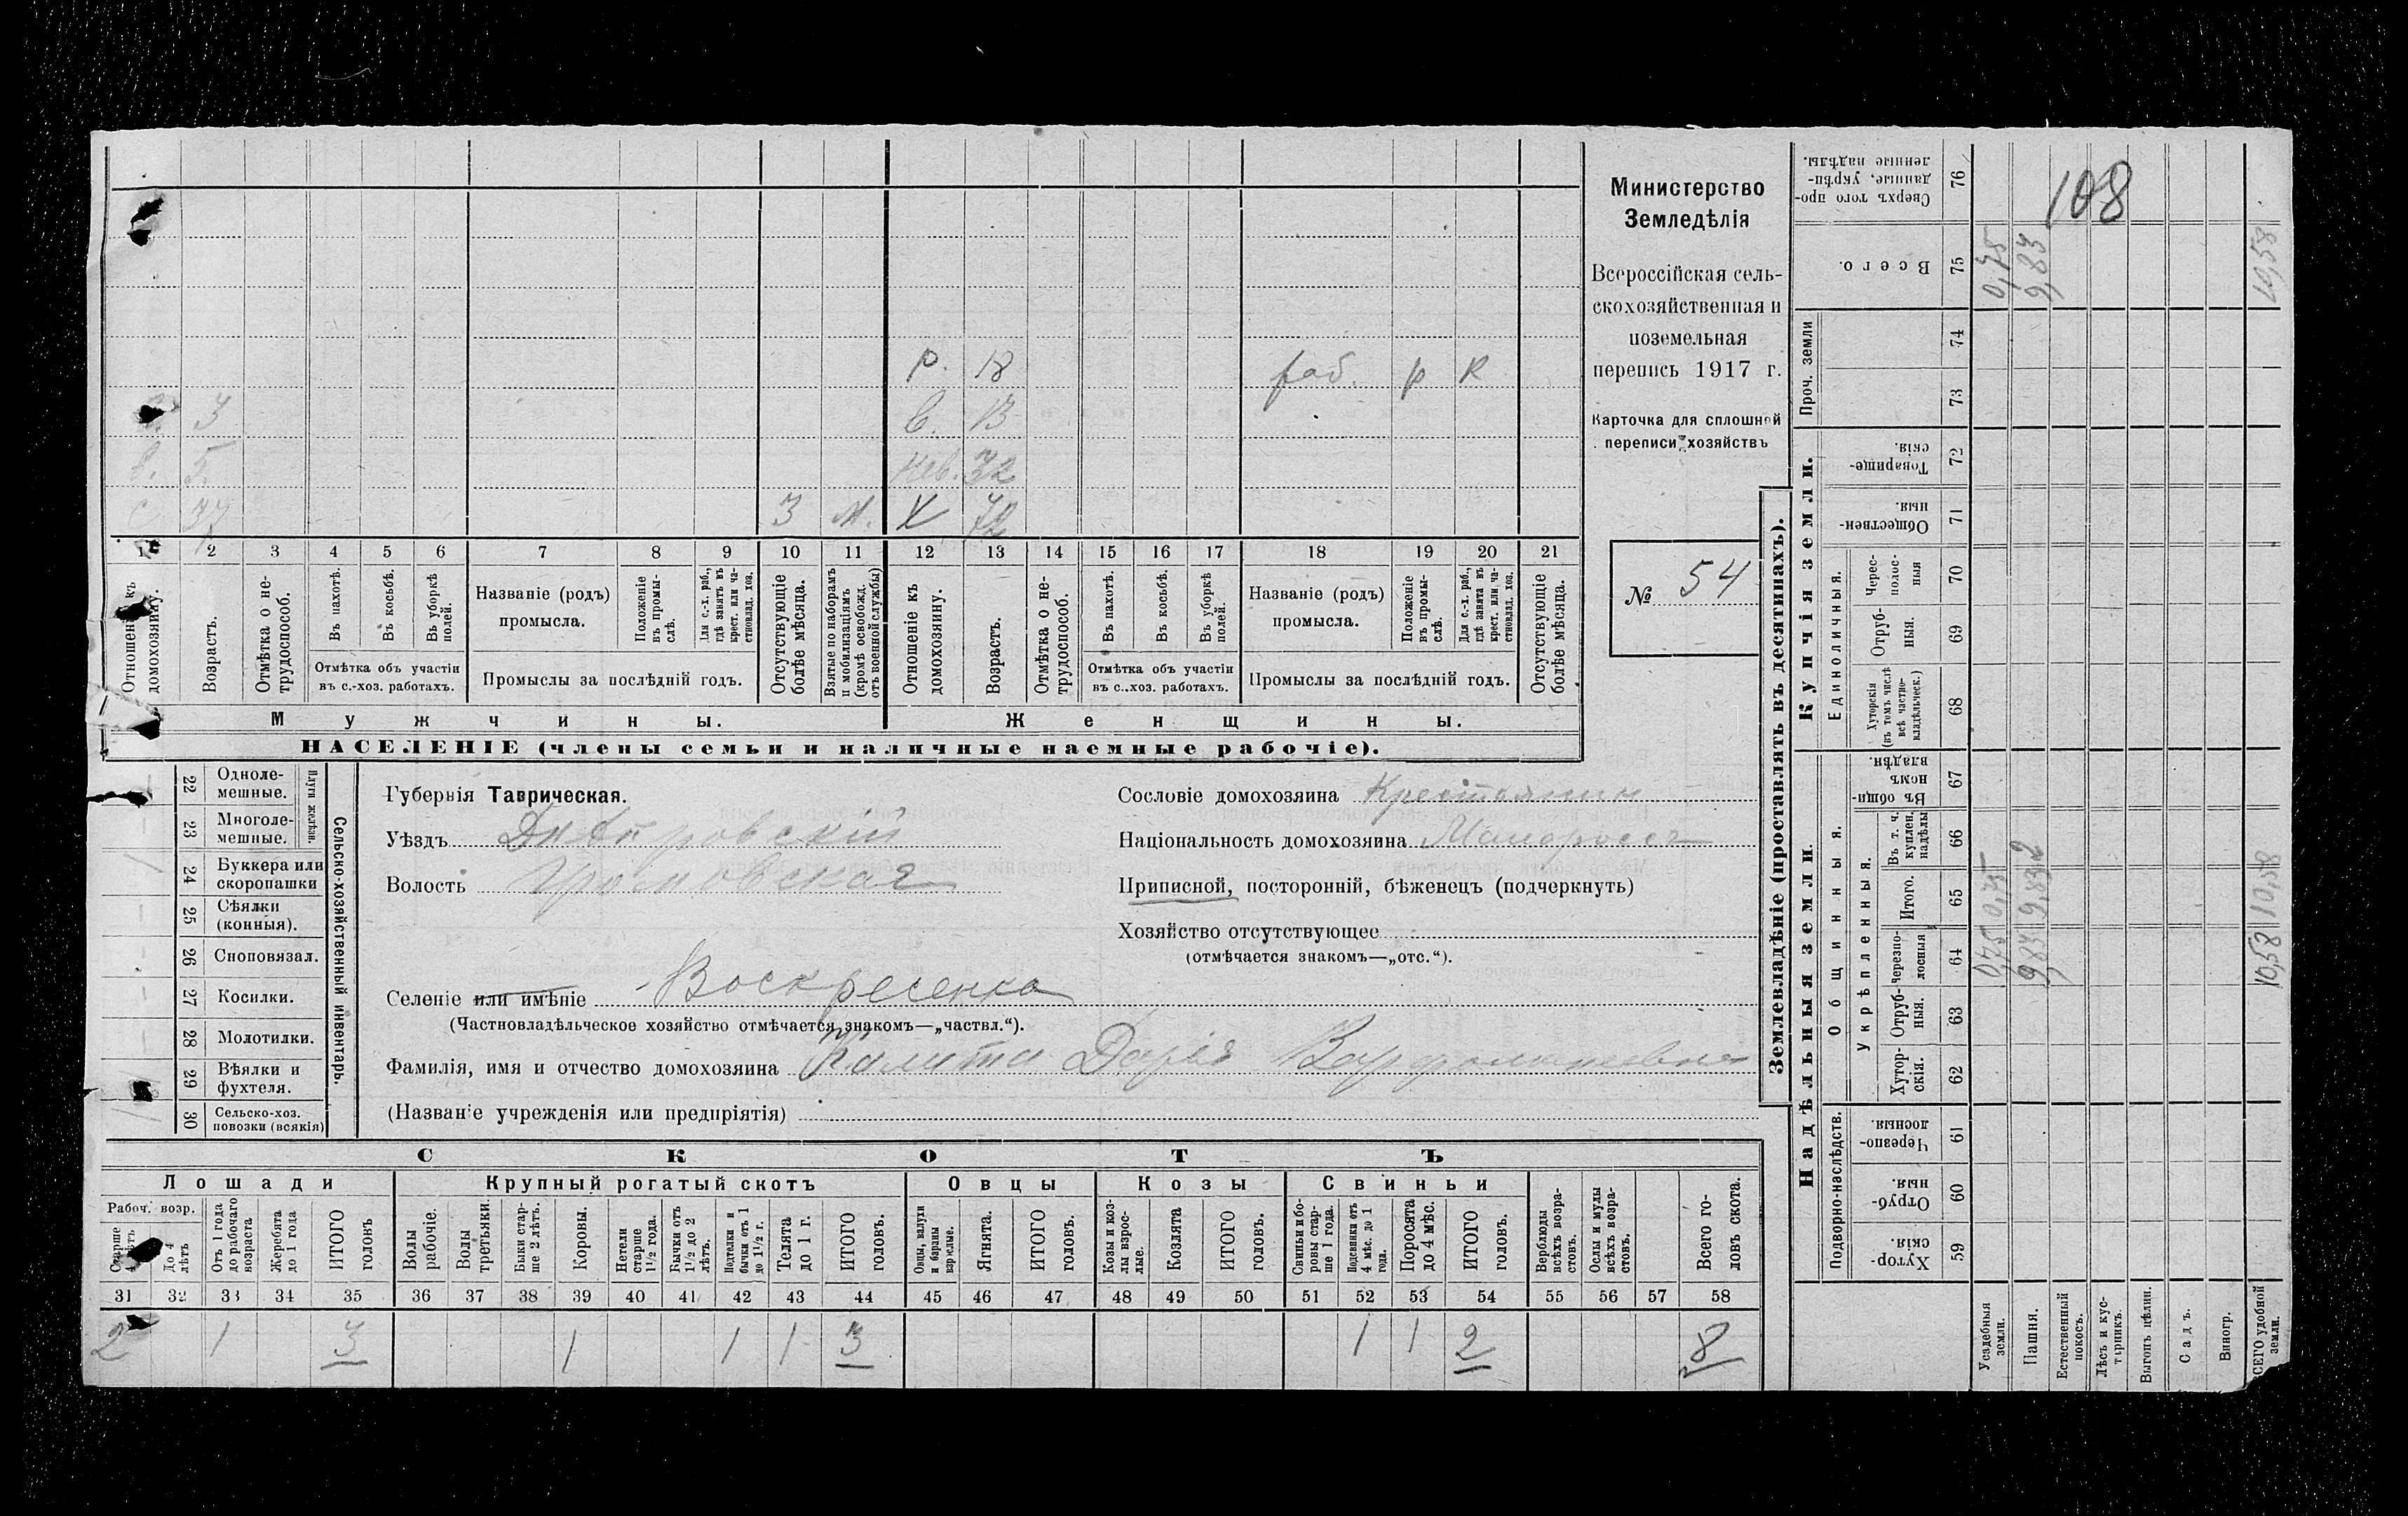 р. 18 раб. р к
с. 3 в. 13
в. 5 нев. 32
с. 37 3 м. Х 72
1 2 3 4 5 6 7 8 9 10 11 12 13 14 15 16 17 18 19 20 21
Отношеніе къ домохозяину.
Возрастъ.
Отмѣтка о не-
трудоспособ.
Въ пахотѣ.
Въ косьбѣ.
Въ уборкѣ
полей.
Отмѣтка объ участіи
въ с.-хоз. работахъ.
Названіе (родъ)
промысла.
Положеніе
въ промы-
слѣ.
Для с.-х. раб.,
гдѣ занятъ въ
крест. или ча-
стновлад. хоз.
Промыслы за послѣдній годъ.
Отсутствующіе
болѣе мѣсяца.
Взятые по наборамъ
и мобилизаціямъ
(кромѣ освобожд.
отъ военной службы)
Отношеніе къ
домохозяину.
Возрастъ.
Отмѣтка о не-
трудоспособ.
Въ пахотѣ.
Въ косьбѣ.
Въ уборкѣ
полей.
Отмѣтка объ участіи
въ с.-хоз. работахъ.
Названіе (родъ)
промысла.
Положеніе
въ промы-
слѣ.
Для с.-х. раб.,
гдѣ занята въ
крест. или ча-
стновлад. хоз.
Промыслы за послѣдній годъ.
Отсутствующіе
болѣе мѣсяца.
Мужчины.
Женщины.
НАСЕЛЕНІЕ (члены семьи и наличные наемные рабочіе).
Министерство
Земледѣлія
Всероссійская сель-
скохозяйственная и
поземельная
перепись 1917 г.
Карточка для сплошной
переписи хозяйствъ
№ 54
22 Одноле-
мешные.
23 Многоле-
мешные.
Плуги желѣзн.
24 Буккера или
скоропашки
25 Сѣялки
(конныя).
26 Сноповязал.
27 Косилки.
28 Молотилки.
29 Вѣялки и
фухтеля.
30 Сельско-хоз.
повозки (всякія)
Сельско-хозяйственный инвентарь.
Губернія Таврическая.
Уѣздъ Днѣпровскій
Волость Громовская
Селеніе или имѣніе Воскресенка
(Частновладѣльческое хозяйство отмѣчается знакомъ—„частвл.“).
Фамилія, имя и отчество домохозяина Калита Дарія Варфоломеевна
(Названіе учрежденія или предпріятія)
Сословіе домохозяина Крестьянин
Національность домохозяина Малоросс
Приписной, посторонній, бѣженецъ (подчеркнуть)
Хозяйство отсутствующее
(отмѣчается знакомъ—„отс.“).
СКОТЪ
Лошади Крупный рогатый скотъ Овцы Козы Свиньи
Рабоч. возр.
Старше
4 лѣтъ
До 4
лѣтъ
Отъ 1 года
до рабочаго
возраста
Жеребята
до 1 года
ИТОГО
головъ
Волы
рабочіе.
Волы
третьяки.
Быки стар-
ше 2 лѣтъ.
Коровы.
Нетели
старше
1½ года.
Бычки отъ
1½ до 2
лѣтъ.
Подтелки и
бычки отъ 1
до 1½ г.
Телята
до 1 г.
ИТОГО
головъ.
Овцы, валухи
и бараны
взрослые.
Ягнята.
ИТОГО
головъ.
Козы и коз-
лы взрос-
лые.
Козлята
ИТОГО
головъ.
Свиньи и бо-
ровы стар-
ше 1 года.
Подсвинки отъ
4 мѣс. до 1
года.
Поросята
до 4 мѣс.
ИТОГО
головъ.
Верблюды
всѣхъ возра-
стовъ.
Ослы и мулы
всѣхъ возра-
стовъ.
Всего го-
ловъ скота.
31 32 33 34 35 36 37 38 39 40 41 42 43 44 45 46 47 48 49 50 51 52 53 54 55 56 57 58
2 1 3 1 1 1 3 1 1 2 8
Землевладѣніе (проставлять въ десятинахъ).
108
Сверхъ того про-
данные, укрѣп-
ленные надѣлы. 76
Всего. 75 0,75 9,83 10,58
Проч. земли 74
73
Купчія земли.
Товарище-
скія. 72
Обществен-
ныя. 71
Единоличныя.
Черес-
полос-
ныя 70
Отруб-
ныя. 69
Хуторскія
(въ томъ числѣ
всѣ частно-
владѣльческ.) 68
Надѣльныя земли.
Общинныя.
Въ общин-
номъ
владѣн. 67
Укрѣпленныя.
Въ т. ч.
куплен.
надѣлы 66
Итого. 65 0,75 9,832 10,58
Черезпо-
лосныя 64 0,75 9,83 10,58
Отруб-
ныя. 63
Хутор-
скія. 62
Подворно-наслѣдств.
Черезпо-
лосныя. 61
Отруб-
ныя. 60
Хутор-
скія. 59
Усадебныя
земли.
Пашня.
Естественный
покосъ.
Лѣсъ и кус-
тарникъ.
Выгонъ цѣлин.
Садъ.
Виногр.
ВСЕГО удобной
земли.